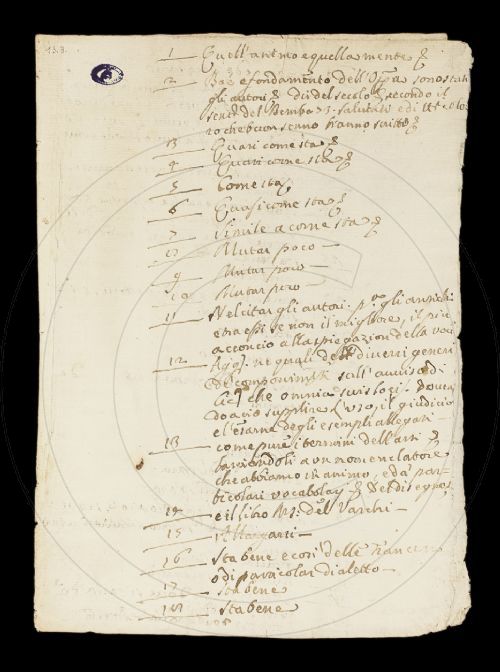 13.8.
1 Quell'animo e quella mente
2 Bas e fondamento dell'Opera sono stati
gli autori del secolo secondo il
del Bembo 3. Salutato e di tt.e colo-
ro che buon senno hanno scritto
13 Quasi come sta
4 Quasi come sta
5 Come sta
6 Quasi come sta
7 Simile a come sta
Mutar poco —
9 Mutar poco —
10 Mutar poco —
11 Nel citar gli autori. p.a gli antichi
e tra essi se non il migliore, il più
acconcio alla spiegazion della voce
12 ne quali de diversi generi
de componim.ti sull'avviso di
che omnia scristori.
do a ciò supplire l'uso, il giudicio
e l'esame degli esempli allegati
13 come pure i termini dell'arti
bavendoli a un nomenclatore
che abbiamo in animo, e da par-
ticolari vocabolarj del disegno
14 e il libro Ms. del Varchi —
15 Altagarti —
16 Sta bene e così delle Francesi
o di particolar dialetto —
17 Sta bene
18 Sta bene